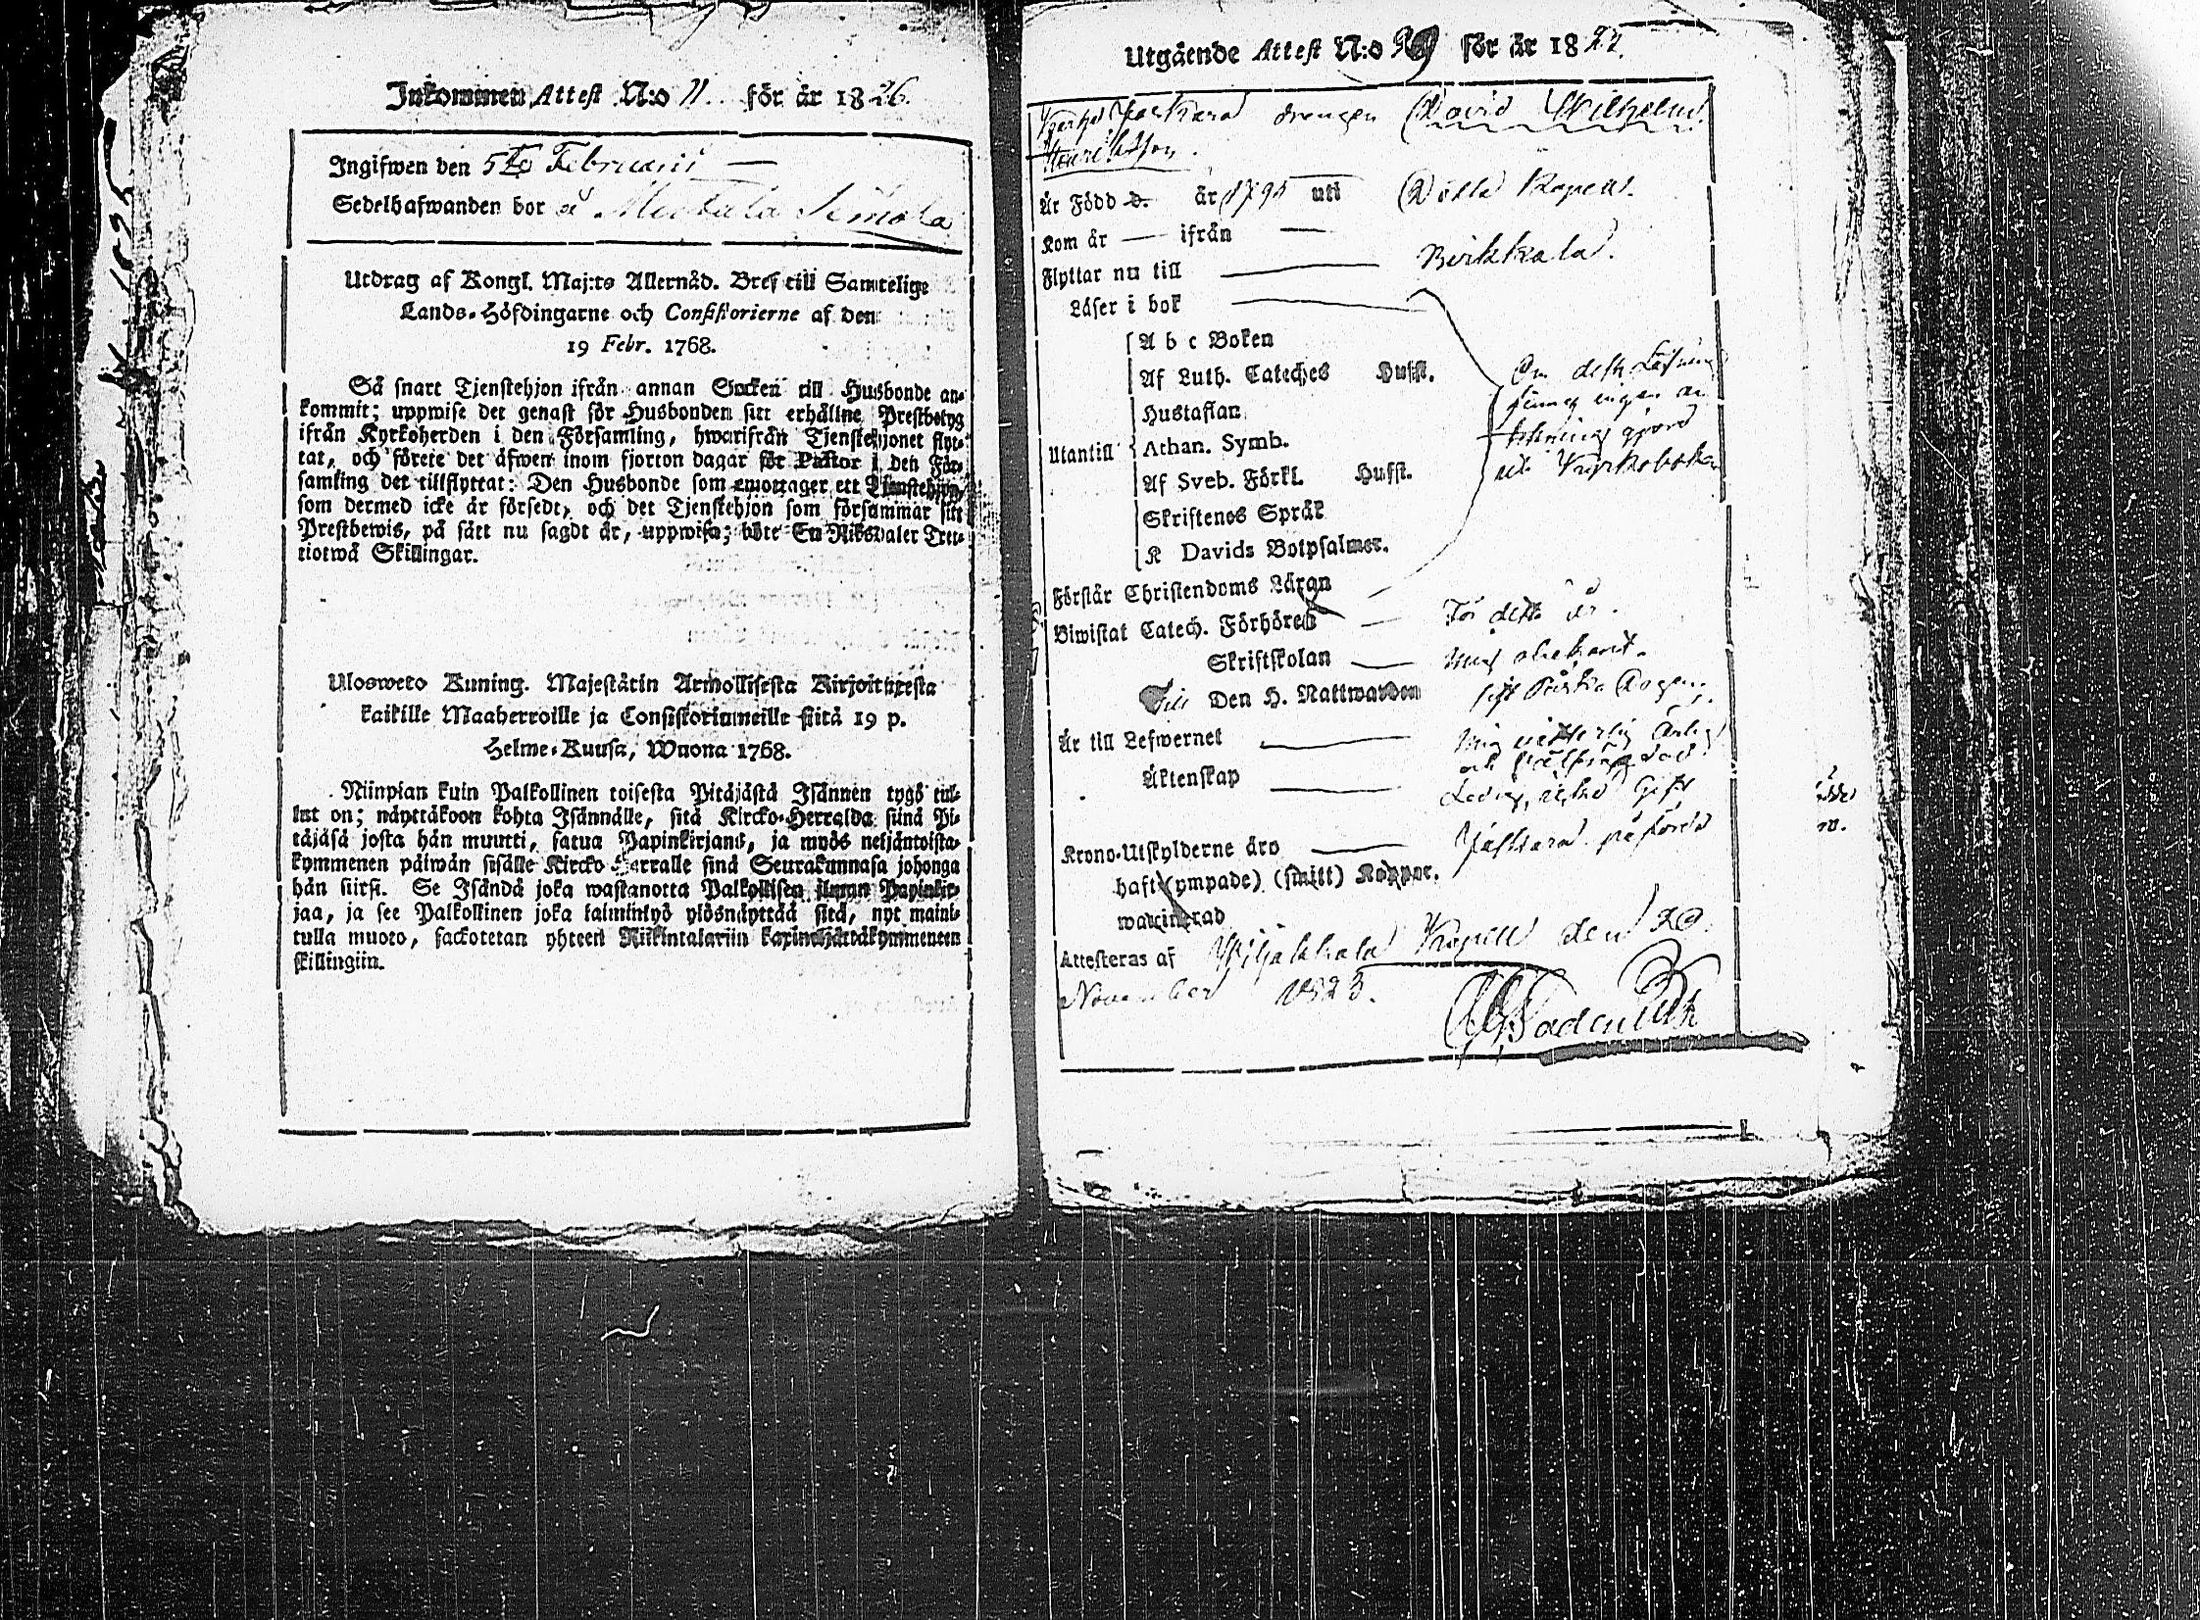 Inkommen Attest N:o 11. för år 1826.
Ingifwen den 5te Februarii —
Sedelhafwanden bor å
Utdrag af Kongl. Maj:ts Allernåd. Bref till Samtelige
Lands-Höfdingarne och Consistorierne af den
19 Febr. 1768.
Så snart Tjenstehjon ifrån annan Socken till Husbonde an-
kommit; uppwise det genast för Husbonden sitt erhållne Prestbetyg
ifrån Kyrkoherden i den Församling, hwarifrån Tjenstehjonet flyt-
tat, och förete det äfwen inom fjorton dagar för Pastor i den För-
samling det tillflyttat: Den Husbonde som emottager ett Tjenstehjon,
som dermed icke är försedt, och det Tjenstehjon som försummar sitt
Prestbewis, på sätt nu sagdt är, uppwisa; böte En Riksdaler Tret-
tiotwå Skillingar.
Ulosweto Kuning. Majestätin Armollisesta Kirjoituxesta
kaikille Maaherroille ja Consistoriumeille siitä 19 p.
Helme-Kuusa, Wuona 1768.
Niinpian kuin Palkollinen toisesta Pitäjästä Isännen tygö tul-
lut on; näyttäkoon kohta Isännälle, sitä Kircko-Herralda siinä Pi-
täjäsä josta hän muutti, saatua Papinkirjans, ja myös neljäntoista-
kymmenen päiwän sisälle Kircko-Herralle siinä Seurakunnasa johonga
hän siirsi. Se Isändä joka wastanotta Palkollisen ilman Papinkir-
jaa, ja see Palkollinen joka laiminlyö ylösnäyttää sitä, nyt maini-
tulla muoto, sackotetan yhteen Riikintalariin
skillingiin.
Utgående Attest N:o 39 för år 18
drengen David Wilhelm
Henriksson.
Är Född d. år 1795 uti Kapell.
Kom år — ifrån —
Flyttar nu till — Birkkala.
Läser i bok —
A b c Boken
Af Luth. Cateches Hufst. Om dess Läsning
Hustaflan finnes ingen an
Utantill Athan. Symb. teckning gjord
Af Sveb. Förkl. Hufst. uti Kyrkoboken
Skriftenes Språk
K Davids Botpsalmer.
Förstår Christendoms Läran —
Biwistat Catech. Förhören — För detta år.
Skriftskolan — mig obekant.
Till Den H. Nattwarden
Är till Lefwernet — mig
och
Äktenskap — Ledig,
Krono-Utskylderne äro —
haft (ympade) (smitt) Koppor.
waccinerad
Attesteras af Wiljakkala Kapell den 20
November 1823.